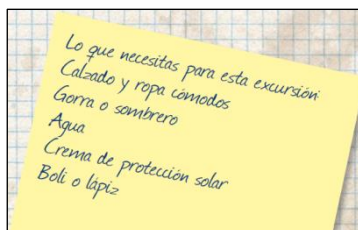 Lo que necesitas para esta excursión:
Calzado y ropa cómodos
Gorra o sombrero
Agua
Crema de protección solar
Boli o lápiz